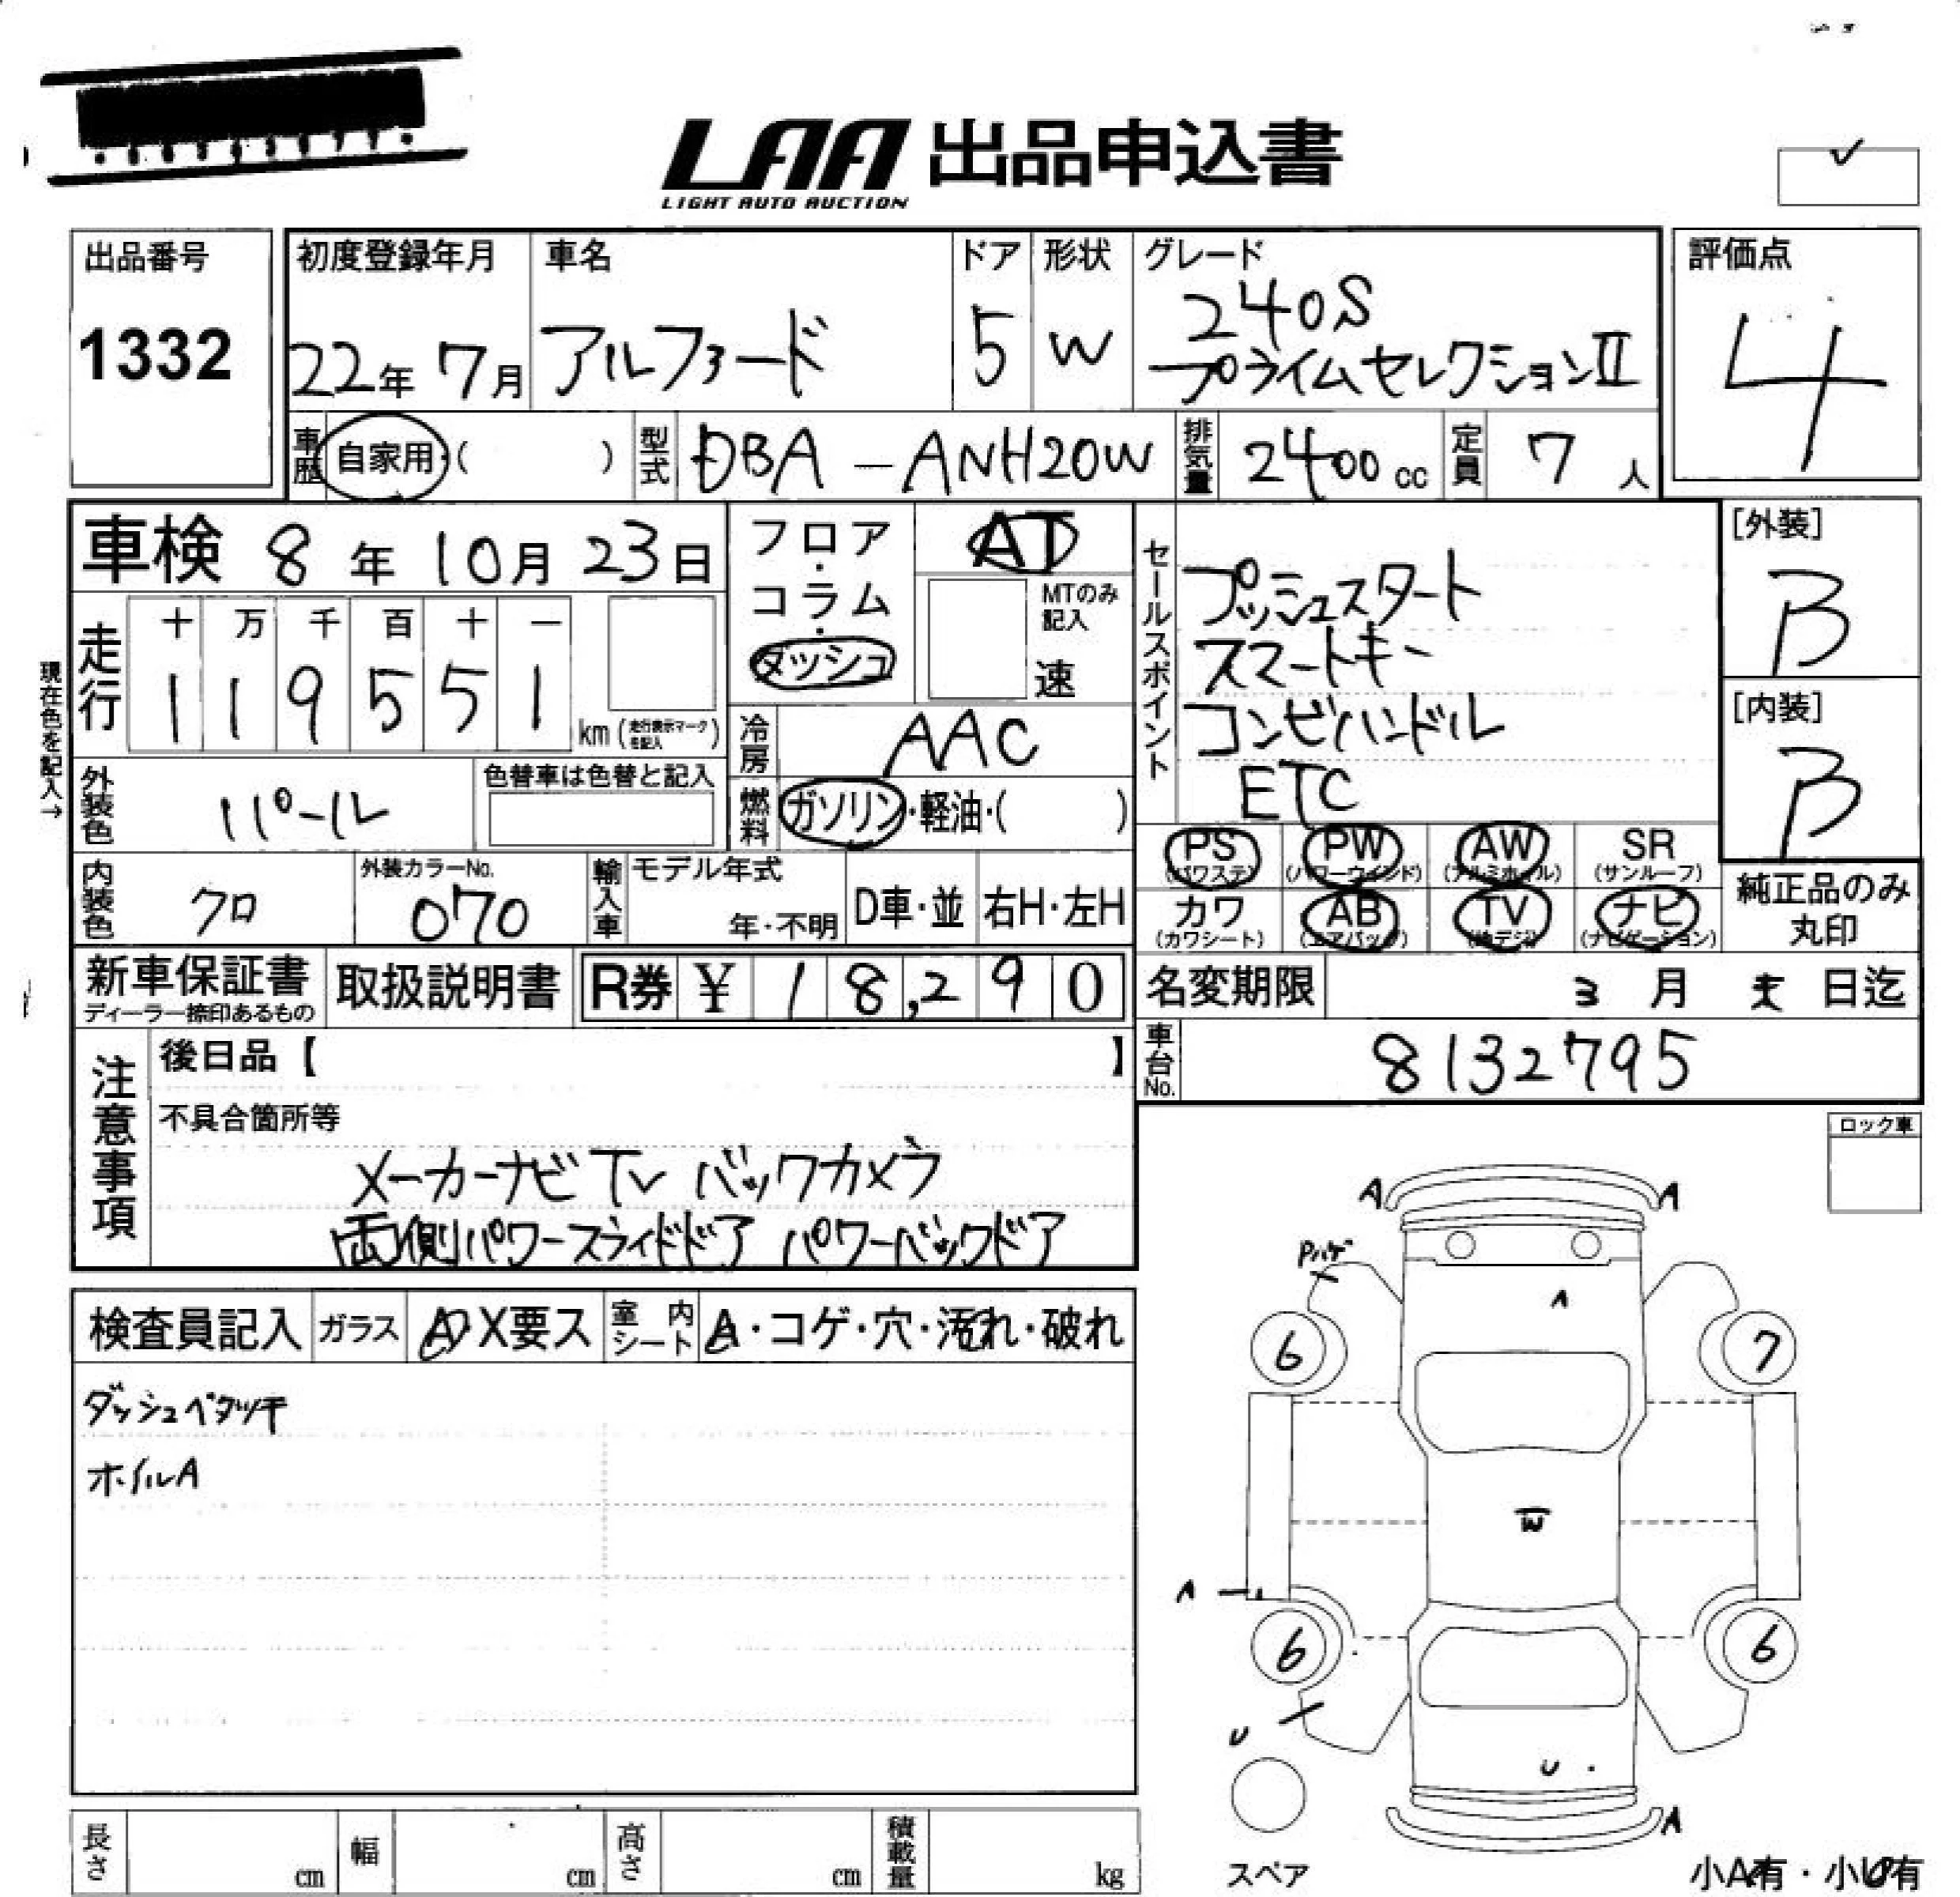 LAA 出品申込書
LIGHT AUTO AUCTION
出品番号
1332
初度登録年月
22年 7月
車名
アルファード
ドア
5
形状
W
グレード
240S
プライムセレクションⅡ
評価点
4
車歴 自家用・( )
型式 DBA-ANH20W
排気量 2400 cc
定員 7 人
車検 8年 10月 23日
フロア・コラム・ダッシュ
AT
MTのみ記入
速
セールスポイント
プッシュスタート
スマートキー
コンビハンドル
ETC
[外装]
B
[内装]
B
現在色を記入→
走行
十 万 千 百 十 一
1 1 9 5 5 1 km (走行表示マークを記入)
冷房 AAC
外装色 パール
色替車は色替と記入
燃料 ガソリン・軽油・( )
PS (パワステ)
PW (パワーウインド)
AW (アルミホイル)
SR (サンルーフ)
カワ (カワシート)
AB (エアバッグ)
TV (地デジ)
ナビ (ナビゲーション)
純正品のみ丸印
内装色 クロ
外装カラーNo.
070
輸入車
モデル年式
年・不明
D車・並
右H・左H
新車保証書
ディーラー捺印あるもの
取扱説明書
R券 ¥ 18,290
名変期限 3 月 末 日迄
車台No. 8132795
注意事項
後日品【 】
不具合箇所等
メーカーナビ TV バックカメラ
両側パワースライドドア パワーバックドア
ロック車
検査員記入
ガラス A・X要ス
室内シート A・コゲ・穴・汚れ・破れ
ダッシュベタツキ
ホイルA
A A
Pハゲ
A
6 7
W
A
6 6
U
U
A
スペア
小A有・小U有
長さ cm
幅 cm
高さ cm
積載量 kg